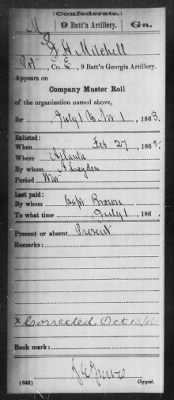 (Confederate.)
M 9 Batt'n Artillery. Ga.
J. H. Mitchell
Pvt, Co. E, 9 Batt'n Georgia Artillery.
Appears on
Company Muster Roll
of the organization named above,
for July 1 to Nov 1, 1863.
Enlisted:
When Feb. 27, 186
Where Atlanta
By whom A Leyden
Period War
Last paid:
By whom Capt Brown
To what time July 1, 186
Present or absent Present
Remarks:
x Corrected Oct
Book mark:
(642) Copyist.